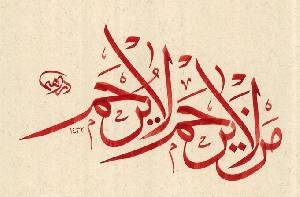 من لا يرحم لا يرحم
١٤٣٢